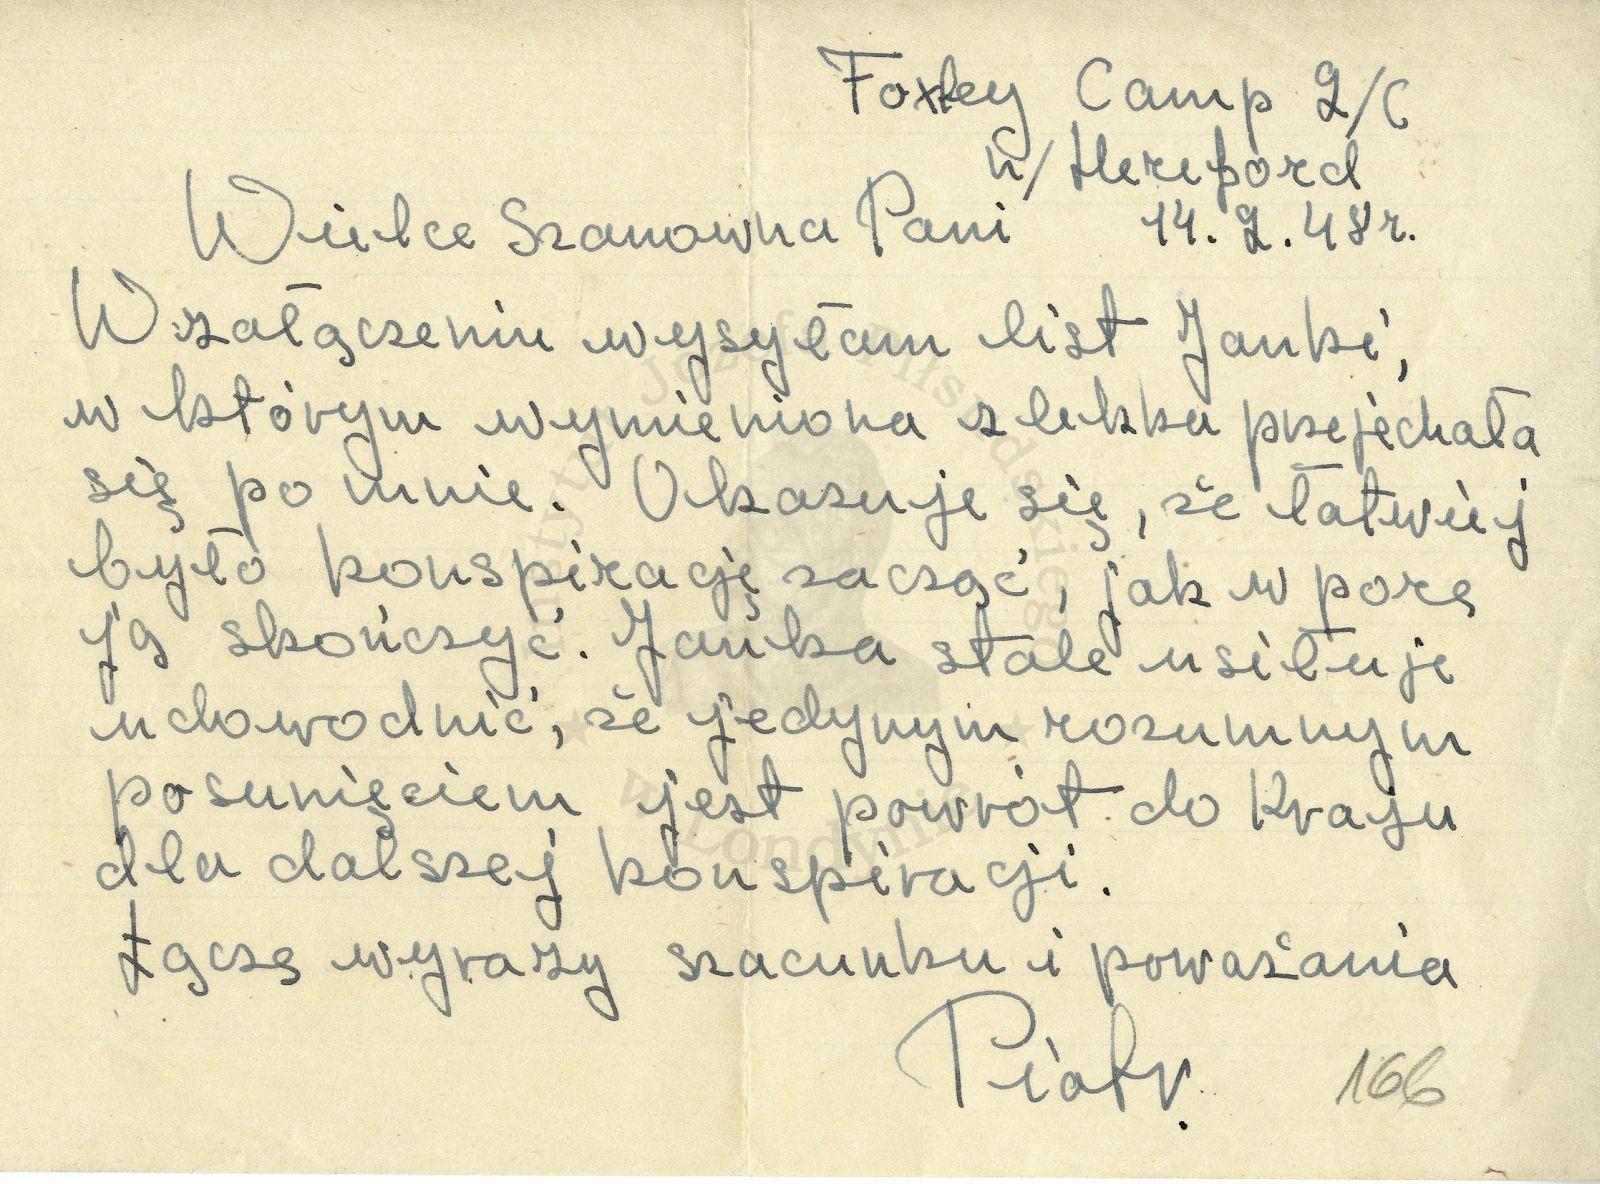 Foxley Camp 2/C
n/Hereford
Wielce Szanowna Pani 14.2.48r.
W załączeniu wysyłam list Janki,
w którym wymieniona zlekka przejechała
się po mnie. Okazuje się, że łatwiej
było konspirację zacząć, jak w porę
ją skończyć. Janka stale usiłuje
udowodnić, że jedynym rozumnym
posunięciem jest powrót do Kraju
dla dalszej konspiracji.
Łączę wyrazy szacunku i poważania
Piotr.
166
Instytut Józefa Piłsudskiego
w Londynie